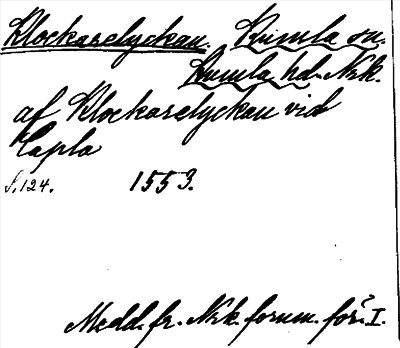 Klockaselyckan. Kumla sn.
Kumla hd. Nrk.
af Klockaselyckan vid
Capla
S. 124. 1553.
Medd. fr. Nrk. fornm. för. I.